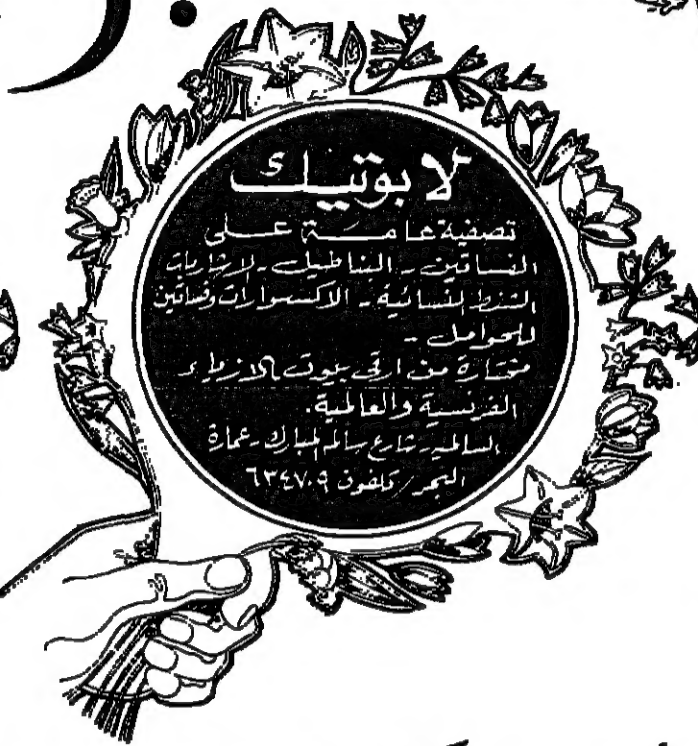 لابوتيك
تصفية عامة على
الفساتين - البناطيل - الإشاربات
الشنط النسائية - الاكسسوارات وفساتين
للحوامل -
مختارة من ارقى بيوت الازياء
الفرنسية والعالمية.
السالمية - شارع سالم المبارك - عمارة
البحر / تلفون ٦٣٤٧٠٩